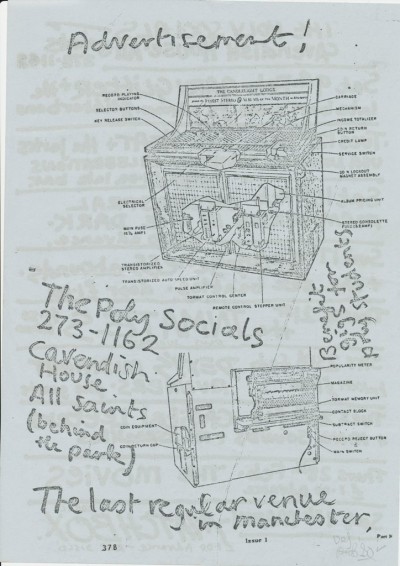 Advertisement!
THE CANDLE-LIGHT LODGE
RECORD PLAYING
INDICATOR
SELECTOR BUTTONS
KEY RELEASE SWITCH
CARRIAGE
MECHANISM
INCOME TOTALIZER
COIN RETURN
BUTTON
CREDIT LAMP
SERVICE SWITCH
COIN LOCKOUT
MAGNET ASSEMBLY
ELECTRICAL
SELECTOR
ALBUM PRICING UNIT
MAIN FUSE
STEREO CONSOLETTE
TRANSISTORIZED
STEREO AMPLIFIER
TRANSISTORIZED AUTO SPEED UNIT
PULSE AMPLIFIER
FORMAT CONTROL CENTER
REMOTE CONTROL STEPPER UNIT
Benefit
gigs for
The Poly Socials
273-1162
Cavendish
House
All Saints
(behind
the park)
POPULARITY METER
MAGAZINE
FORMAT MEMORY UNIT
CONTACT BLOCK
SUBTRACT SWITCH
RECORD REJECT BUTTON
MAIN SWITCH
COIN EQUIPMENT
COIN RETURN CUP
The last regular venue
in manchester,
378
Issue 1